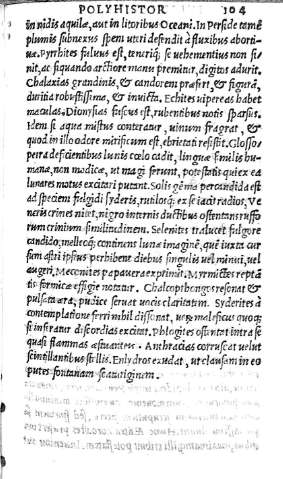 POLYHISTOR 104
in nidis aquilæ, aut in litoribus Oceani. In Perside tamē
plumis subnexus spem uteri defendit à fluxibus aborti-
uæ. Pyrrhites fuluus est, teneriq; se uehementius non si-
nit, ac siquando arctiore manu premitur, digitos adurit.
Chalazias grandinis, & candorem præfert, & figurā,
duritia robustissima, & inuicta. Echites uipereas habet
maculas. Dionysias fuscus est, rubentibus notis sparsus.
Idem si aqua mistus conteratur, uinum fragrat, &
quod in illo odore mirificum est, ebrietati resistit. Glosso
petra deficientibus lunis cœlo cadit, linguæ similis hu-
mana, non modicæ, ut magi ferunt, potestatis quiex ea
lunares motus excitari putant. Solis gēma percandida est
ad speciem fulgidi syderis, rutilosq; ex se iacit radios. Ve
neris crines nitet, nigro internis ductibus ostentans ruffo
rum crinium similitudinem. Selenites tralucet fulgore
candido, melleoq; continens lunæ imaginē, quē iuxta cur
sum astri ipsius perhibent diebus singulis uel minui, uel
augeri. Meconites papauera exprimit. Myrmictes reptā
tis formicæ effigie notatur. Chalcophongos resonat &
pulsata æra, pudice seruat uocis claritatem. Syderites à
contemplatione ferri nihil dissonat, uerū maleficus quoq;
si inferatur discordias excitat. Phlogites ostentat intra se
quasi flammas æstuantes. Anthracias corruscat uelut
scintillantibus stellis. Enhydros exudat, ut clausam in eo
putes fontanam scaturiginem.